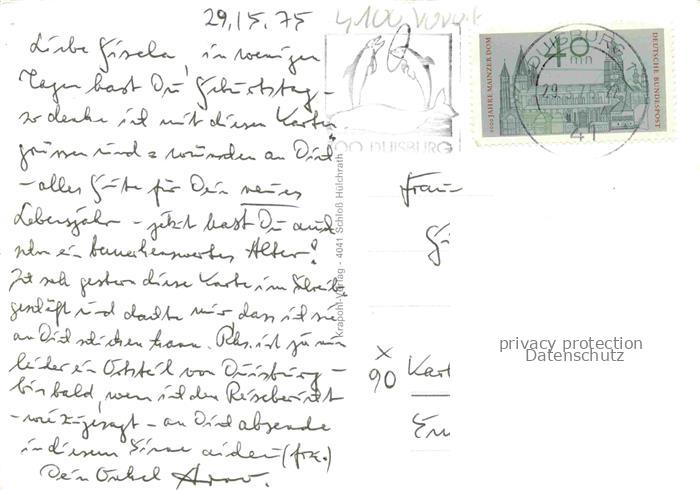 29.15.75
Liebe Gisela, in wenigen
Tagen hast Du Geburtstag -
so denke ich mit diesen Karten
grüssen und wünschen an Dich
- alles Gute für Dein neues
Lebensjahr - jetzt hast Du auch
schon ein bemerkenswertes Alter!
Ich sah gestern diese Karte im
und dachte mir dass ich sie
an Dich schicken kann. ist ja nun
leider ein Ortsteil von Duisburg -
bis bald, wenn ich den Reisebericht
- wie zugesagt - an Dich absende
in diesem Sinne
Dein Onkel
ZOO DUISBURG
DUISBURG 1
29.5.75
41
40
1000 JAHRE MAINZER DOM
DEUTSCHE BUNDESPOST
Krapohl-Verlag - 4041 Schloß Hülchrath
Frau
Gi
x
90 Karl
privacy protection
Datenschutz